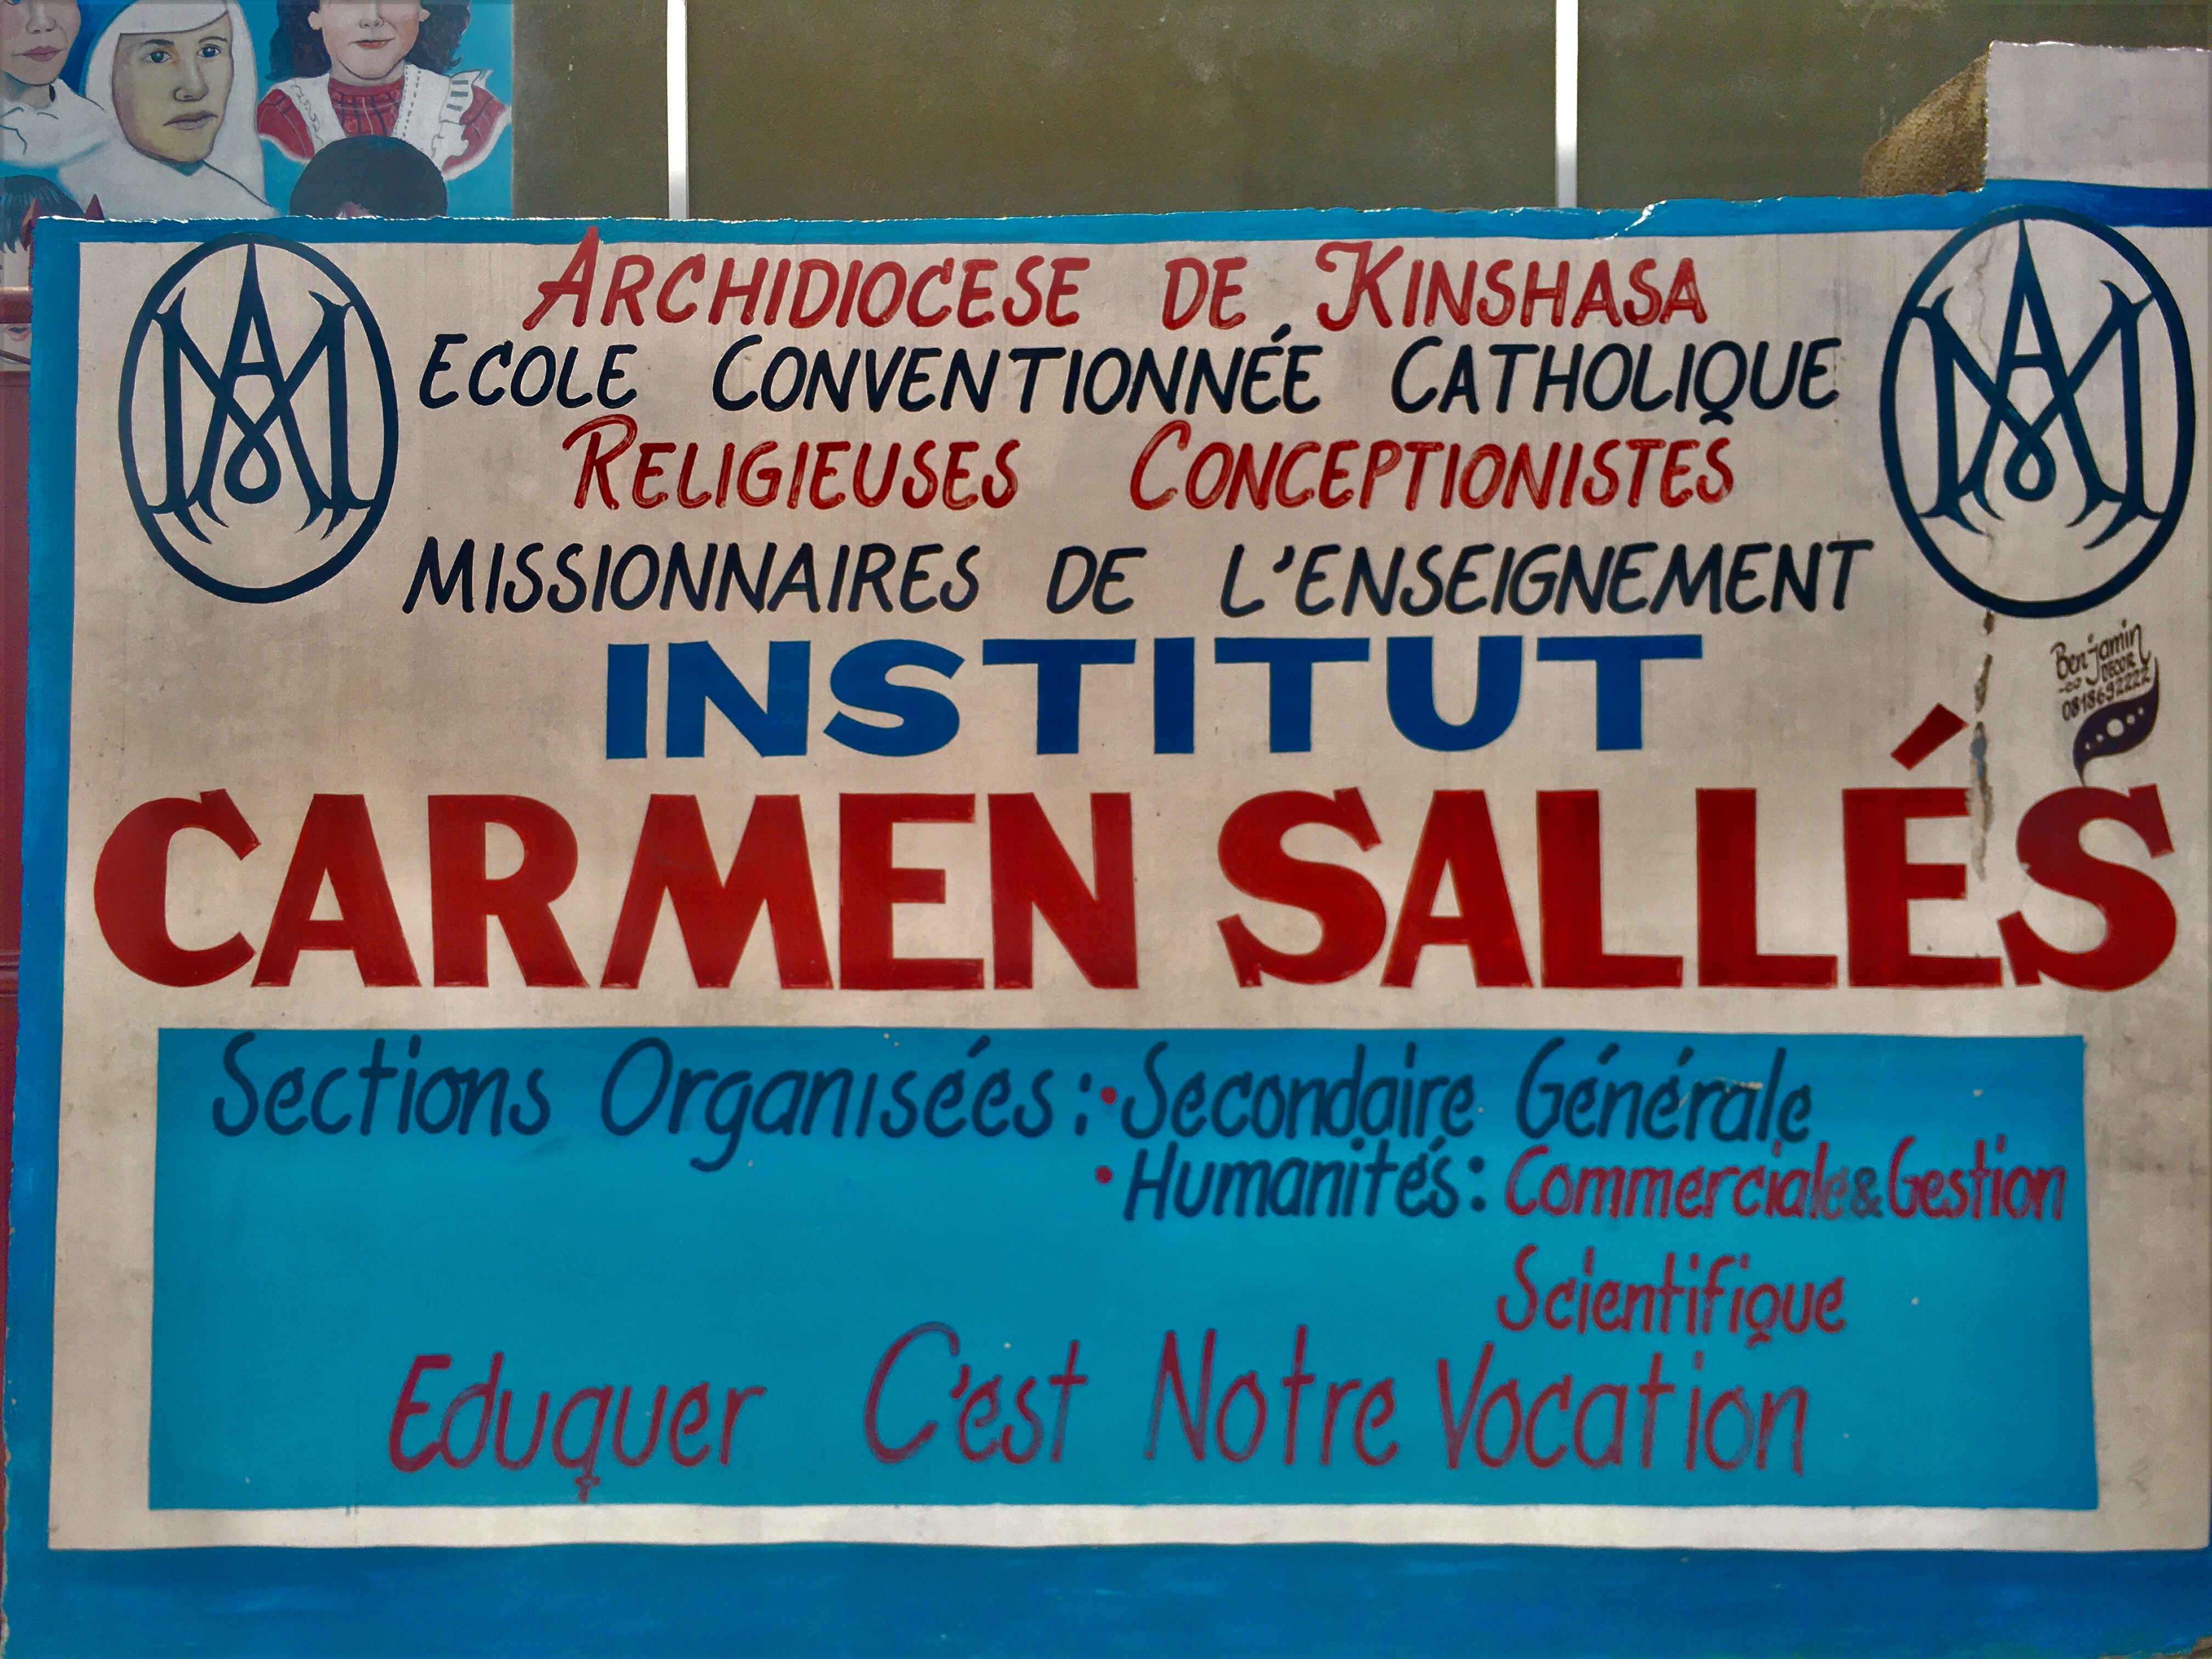 ARCHIDIOCESE DE KINSHASA
ECOLE CONVENTIONNÉE CATHOLIQUE
RELIGIEUSES CONCEPTIONISTES
MISSIONNAIRES DE L'ENSEIGNEMENT
INSTITUT
CARMEN SALLÉS
Benjamin
DECOR
0818692222
Sections Organisées: • Secondaire Générale
• Humanités: Commerciale & Gestion
Scientifique
Eduquer C'est Notre Vocation